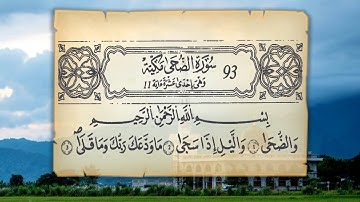 سُورَةُ الضُّحَىٰ مَكِّيَّة 93
وَهِيَ إِحْدَى عَشْرَةَ آيَة 11
بِسْمِ اللَّهِ الرَّحْمَٰنِ الرَّحِيمِ
وَالضُّحَىٰ ۝١ وَاللَّيْلِ إِذَا سَجَىٰ ۝٢ مَا وَدَّعَكَ رَبُّكَ وَمَا قَلَىٰ ۝٣